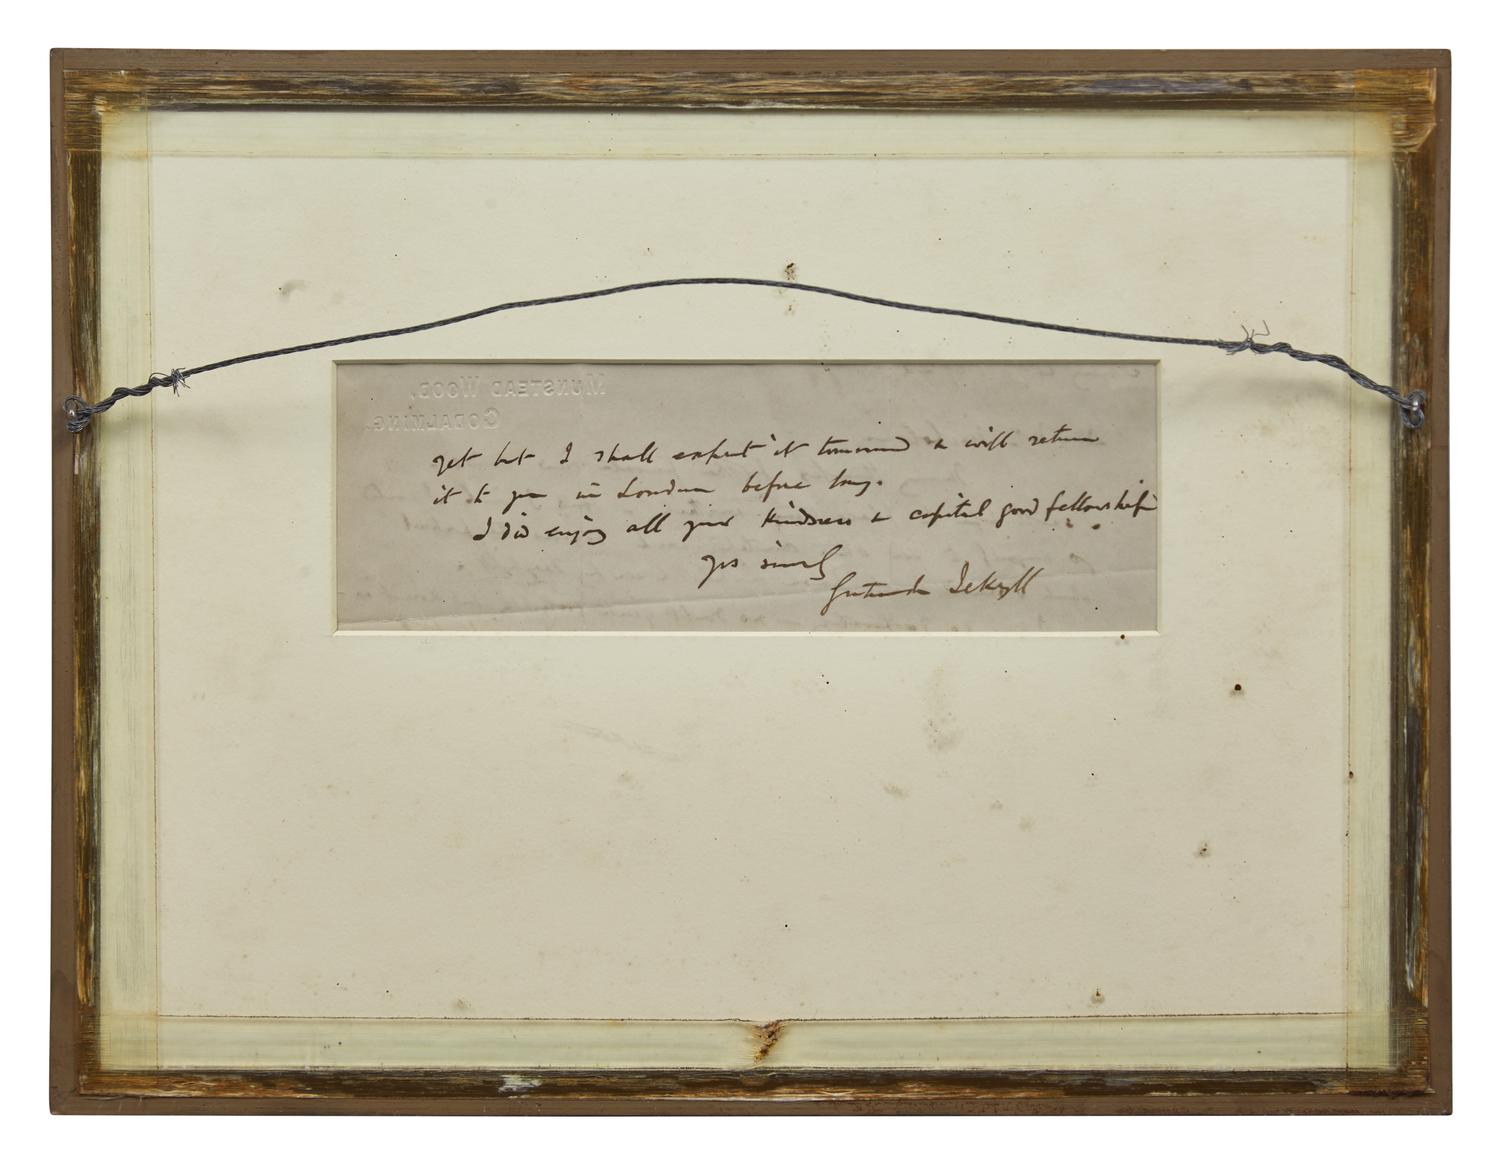 MUNSTEAD WOOD,
GODALMING.
yet but I shall expect it tomorrow & will return
it to you in London before long.
I did enjoy all your kindness & capital good fellowship
yrs sincerely
Gertrude Jekyll